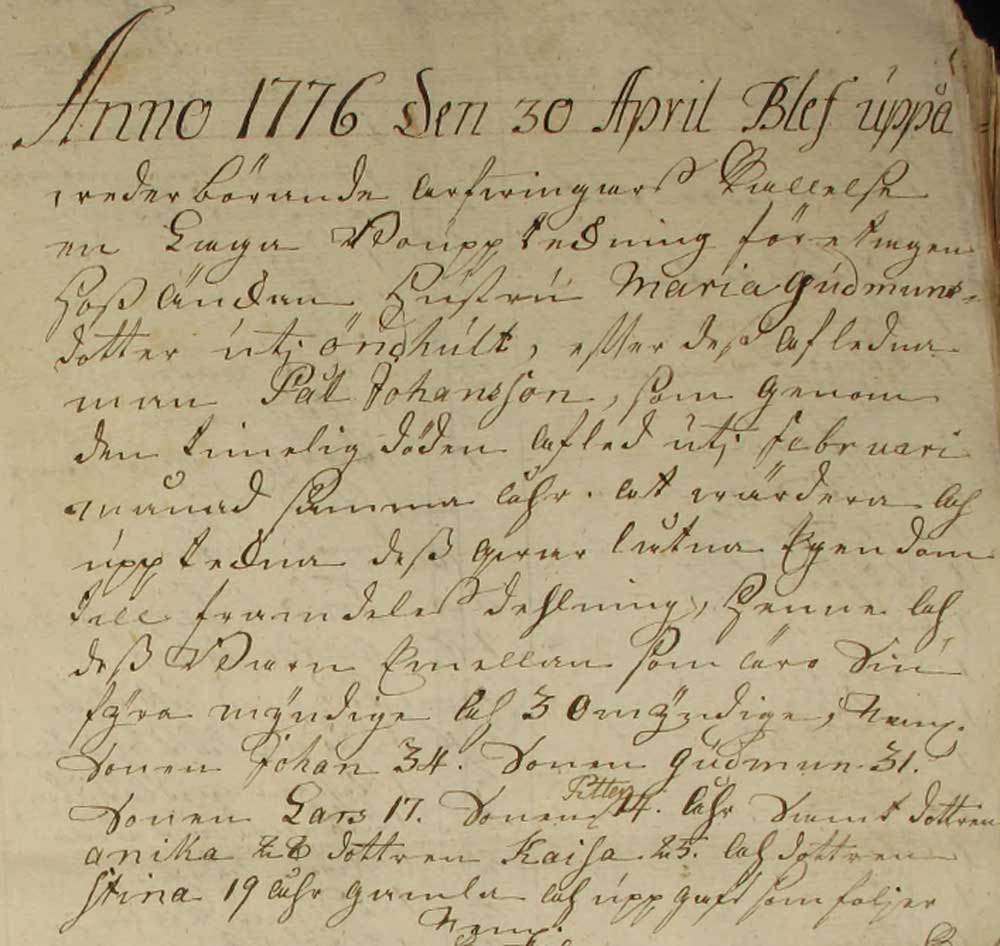 Anno 1776 den 30 April Blef uppå
wederbörande arfwingars Kallelse
en Laga Bouppteckning företagen
hoß änckan Hustru Maria Gudmuns-
dotter uti öndhult, efter deß afledna
man Pàll Johansson, som genom
den timelig döden afled uti februari
månad samma åhr. at wärdera och
uppteckna deß qwarlåtna Egendom
till framdeles dehlning, Henne och
deß Barn Emellan som äro Siu
fÿra mÿndige och 3 Omÿndige, Neml.
Sonen Johan 34. Sonen Gudmun 31.
Sonen Lars 17. Sonen Pitter 14. åhr Samt dottren
anika 28 dottren Kaisa 25. och dottren
Stina 19 åhr gamla och uppgafs som följer
Neml.